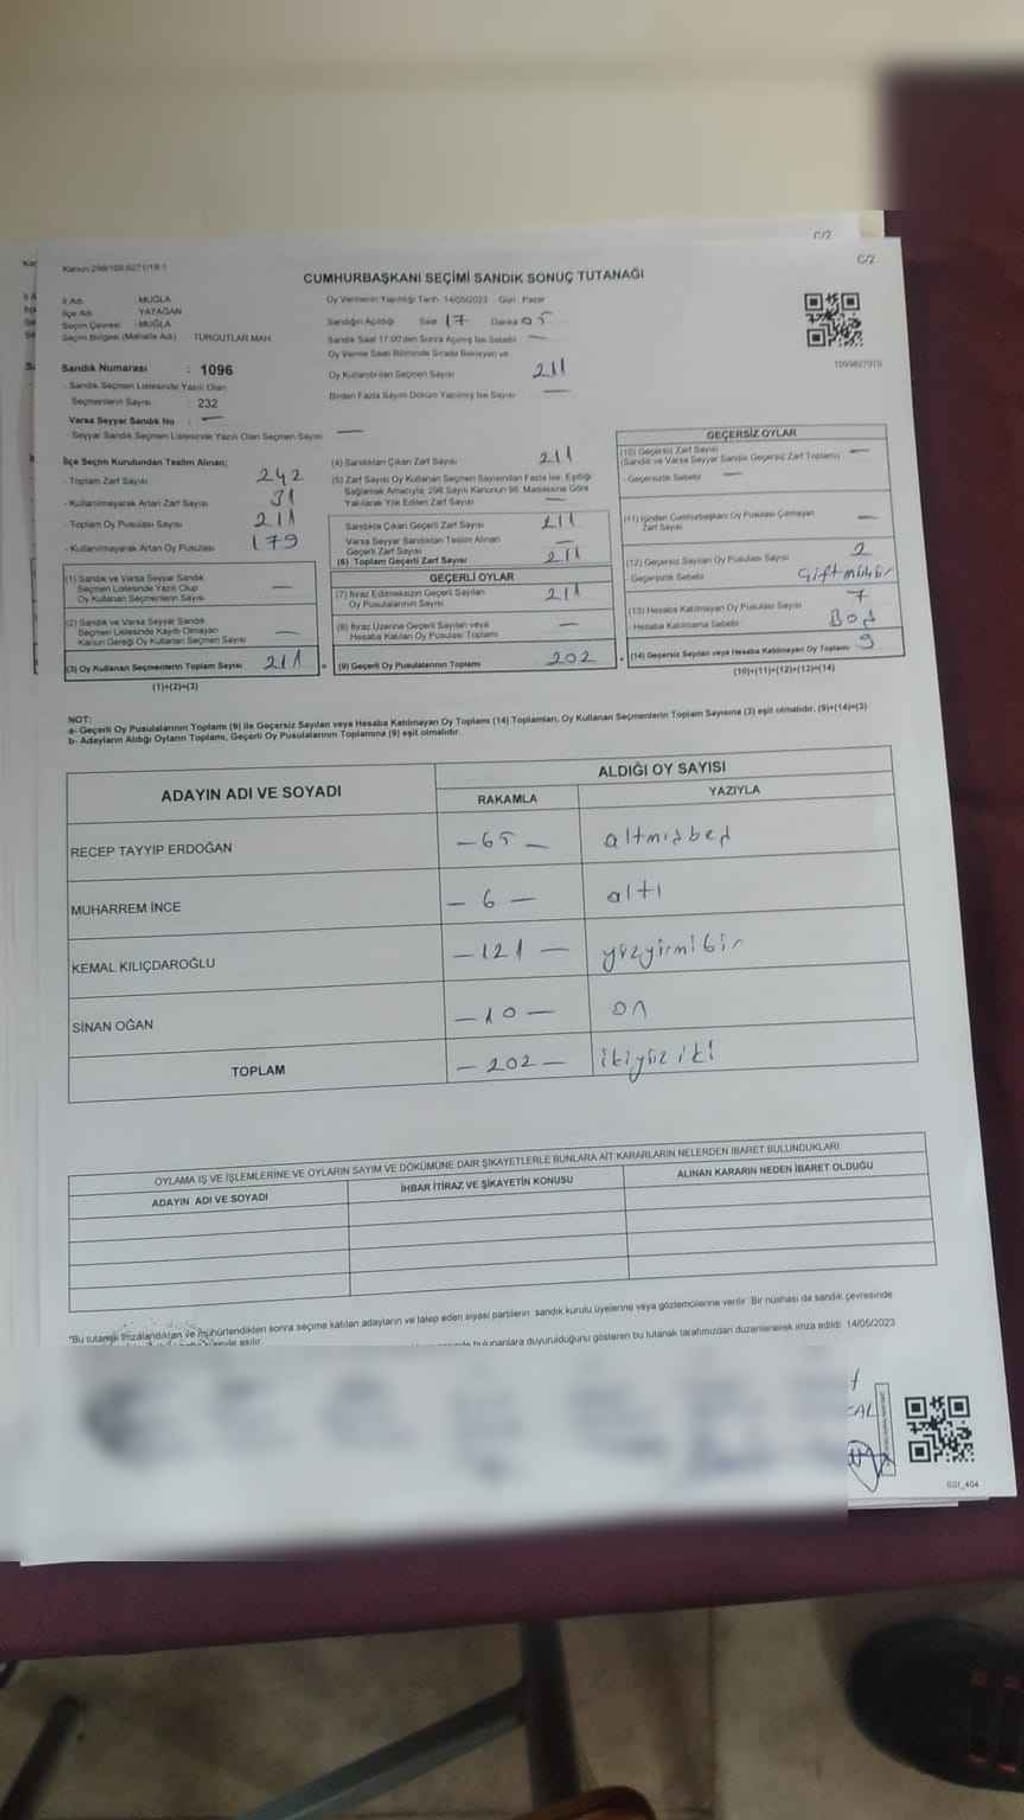 C/2
C/2
CUMHURBAŞKANI SEÇİMİ SANDIK SONUÇ TUTANAĞI
İl Adı MUĞLA
İlçe Adı YATAĞAN
Seçim Çevresi MUĞLA
Seçim Bölgesi (Mahalle Adı) TURGUTLAR MAH.
Oy Vermenin Yapıldığı Tarih 14/05/2023 Gün Pazar
Sandığın Açıldığı Saat 17 Dakika 05
Sandık Saat 17:00'den Sonra Açılmış İse Sebebi —
Oy Verme Saati Bitiminde Sırada Bekleyen ve
Oy Kullandırılan Seçmen Sayısı 211
Birden Fazla Sayım Döküm Yapılmış İse Sayısı —
Sandık Numarası : 1096
Sandık Seçmen Listesinde Yazılı Olan
Seçmenlerin Sayısı : 232
Varsa Seyyar Sandık No : —
Seyyar Sandık Seçmen Listesinde Yazılı Olan Seçmen Sayısı —
İlçe Seçim Kurulundan Teslim Alınan;
- Toplam Zarf Sayısı 242
- Kullanılmayarak Artan Zarf Sayısı 31
- Toplam Oy Pusulası Sayısı 211
- Kullanılmayarak Artan Oy Pusulası 179
(1) Sandık ve Varsa Seyyar Sandık
Seçmen Listesinde Yazılı Olup
Oy Kullanan Seçmenlerin Sayısı —
(2) Sandık ve Varsa Seyyar Sandık
Seçmen Listesinde Kayıtlı Olmayan
Kanun Gereği Oy Kullanan Seçmen Sayısı —
(3) Oy Kullanan Seçmenlerin Toplam Sayısı 211
(1)+(2)=(3)
(4) Sandıktan Çıkan Zarf Sayısı 211
(5) Zarf Sayısı Oy Kullanan Seçmen Sayısından Fazla İse, Eşitliği
Sağlamak Amacıyla 298 Sayılı Kanunun 98. Maddesine Göre
Yakılarak Yok Edilen Zarf Sayısı —
Sandıkta Çıkan Geçerli Zarf Sayısı 211
Varsa Seyyar Sandıktan Teslim Alınan
Geçerli Zarf Sayısı —
(6) Toplam Geçerli Zarf Sayısı 211
GEÇERLİ OYLAR
(7) İtiraz Edilmeksizin Geçerli Sayılan
Oy Pusulalarının Sayısı 211
(8) İtiraz Üzerine Geçerli Sayılan veya
Hesaba Katılan Oy Pusulası Toplamı —
(9) Geçerli Oy Pusulalarının Toplamı 202
GEÇERSİZ OYLAR
(10) Geçersiz Zarf Sayısı
(Sandık ve Varsa Seyyar Sandık Geçersiz Zarf Toplamı) —
- Geçersizlik Sebebi —
(11) İçinden Cumhurbaşkanı Oy Pusulası Çıkmayan
Zarf Sayısı —
(12) Geçersiz Sayılan Oy Pusulası Sayısı 2
Geçersizlik Sebebi Çift mühür
(13) Hesaba Katılmayan Oy Pusulası Sayısı 7
Hesaba Katılmama Sebebi Boş
(14) Geçersiz Sayılan veya Hesaba Katılmayan Oy Toplamı 9
(10)+(11)+(12)+(13)=(14)
NOT:
a- Geçerli Oy Pusulalarının Toplamı (9) ile Geçersiz Sayılan veya Hesaba Katılmayan Oy Toplamı (14) Toplamları, Oy Kullanan Seçmenlerin Toplam Sayısına (3) eşit olmalıdır. (9)+(14)=(3)
b- Adayların Aldığı Oyların Toplamı, Geçerli Oy Pusulalarının Toplamına (9) eşit olmalıdır.
ADAYIN ADI VE SOYADI ALDIĞI OY SAYISI
RAKAMLA YAZIYLA
RECEP TAYYİP ERDOĞAN —65— altmışbeş
MUHARREM İNCE —6— altı
KEMAL KILIÇDAROĞLU —121— yüzyirmibir
SİNAN OĞAN —10— on
TOPLAM —202— ikiyüz iki
OYLAMA İŞ VE İŞLEMLERİNE VE OYLARIN SAYIM VE DÖKÜMÜNE DAİR ŞİKAYETLERLE BUNLARA AİT KARARLARIN NELERDEN İBARET BULUNDUKLARI
ADAYIN ADI VE SOYADI İHBAR İTİRAZ VE ŞİKAYETİN KONUSU ALINAN KARARIN NEDEN İBARET OLDUĞU
"Bu tutanak imzalandıktan ve mühürlendikten sonra seçime katılan adayların ve talep eden siyasi partilerin sandık kurulu üyelerine veya gözlemcilerine verilir. Bir nüshası da sandık çevresinde
bulunanlara duyurulduğunu gösteren bu tutanak tarafımızdan düzenlenerek imza edildi. 14/05/2023